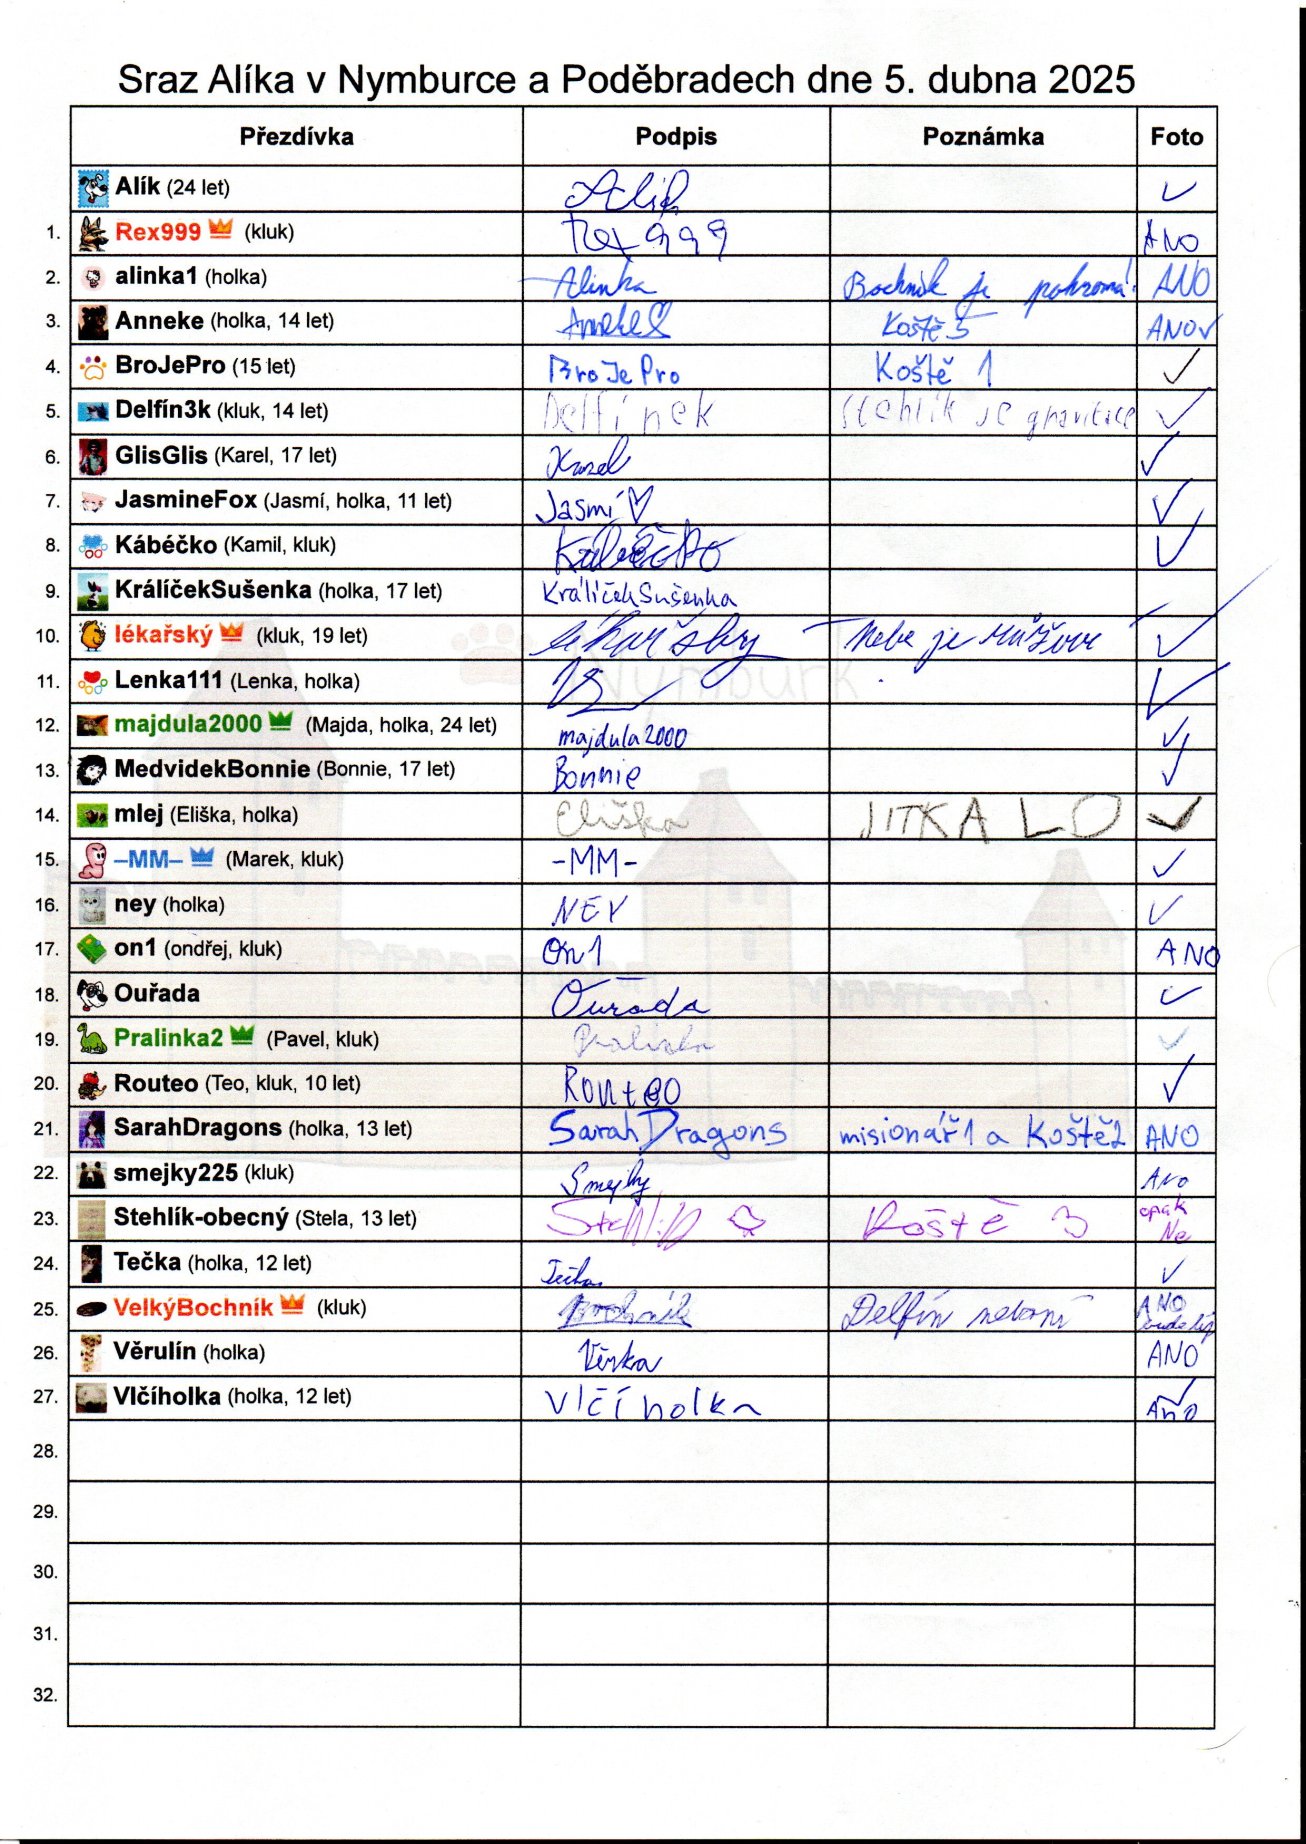 Sraz Alíka v Nymburce a Poděbradech dne 5. dubna 2025
Přezdívka Podpis Poznámka Foto
Alík (24 let) Alík ✓
1. Rex999 (kluk) Rex999 ANO
2. alinka1 (holka) Alinka Bochník je pohroma! ANO
3. Anneke (holka, 14 let) Anneke Koště 5 ANO ✓
4. BroJePro (15 let) BroJePro Koště 1 ✓
5. Delfín3k (kluk, 14 let) Delfínek Stehlík je gravitace ✓
6. GlisGlis (Karel, 17 let) Karel ✓
7. JasmineFox (Jasmí, holka, 11 let) Jasmí ♡ ✓
8. Kábéčko (Kamil, kluk) Kábéčko ✓
9. KrálíčekSušenka (holka, 17 let) KrálíčekSušenka
10. lékařský (kluk, 19 let) lékařský Nebe je růžové ✓
Nymburk
11. Lenka111 (Lenka, holka) ✓
12. majdula2000 (Majda, holka, 24 let) majdula2000 ✓
13. MedvidekBonnie (Bonnie, 17 let) Bonnie ✓
14. mlej (Eliška, holka) Eliška JITKA LO ✓
15. –MM– (Marek, kluk) -MM- ✓
16. ney (holka) NEY ✓
17. on1 (ondřej, kluk) On1 ANO
18. Ouřada Ouřada ✓
19. Pralinka2 (Pavel, kluk) Pralinka ✓
20. Routeo (Teo, kluk, 10 let) Routeo ✓
21. SarahDragons (holka, 13 let) SarahDragons misionář1 a Koště2 ANO
22. smejky225 (kluk) Smejky Ano
23. Stehlík-obecný (Stela, 13 let) Stehlík Koště 3 opak Ne
24. Tečka (holka, 12 let) Tečka ✓
25. VelkýBochník (kluk) Bochník Delfín neborní ANO
26. Věrulín (holka) Věrka ANO
27. Vlčíholka (holka, 12 let) Vlčíholka ✓ Ano
28.
29.
30.
31.
32.